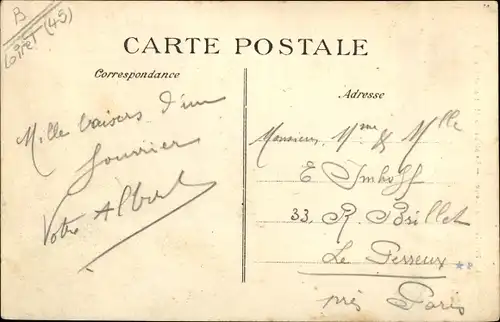 B
Loiret (45)
CARTE POSTALE
Correspondance
Adresse
Mille baisers d'un
Votre Albert
Monsieur, Mme & Mlle
E Imhoff
33, R. Brillet
Le Perreux
près Paris